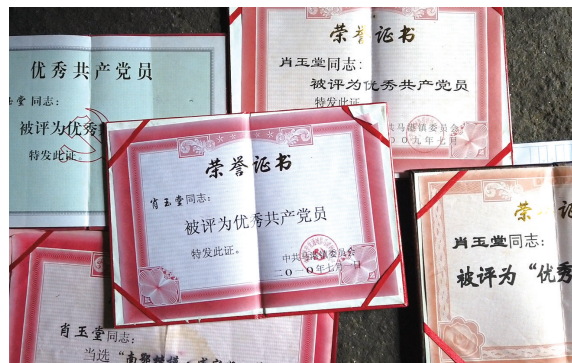 优秀共产党员
玉堂同志:
被评为优秀
特发此证
荣誉证书
肖玉堂同志:
被评为优秀共产党员
特发此证
中共马港镇委员会
二〇〇九年七月
荣誉证书
肖玉堂同志:
被评为优秀共产党员
特发此证。
中共马港镇委员会
二〇一〇年七月一日
荣
证书
肖玉堂同志:
被评为“优秀
肖玉堂同志:
当选“南鄂